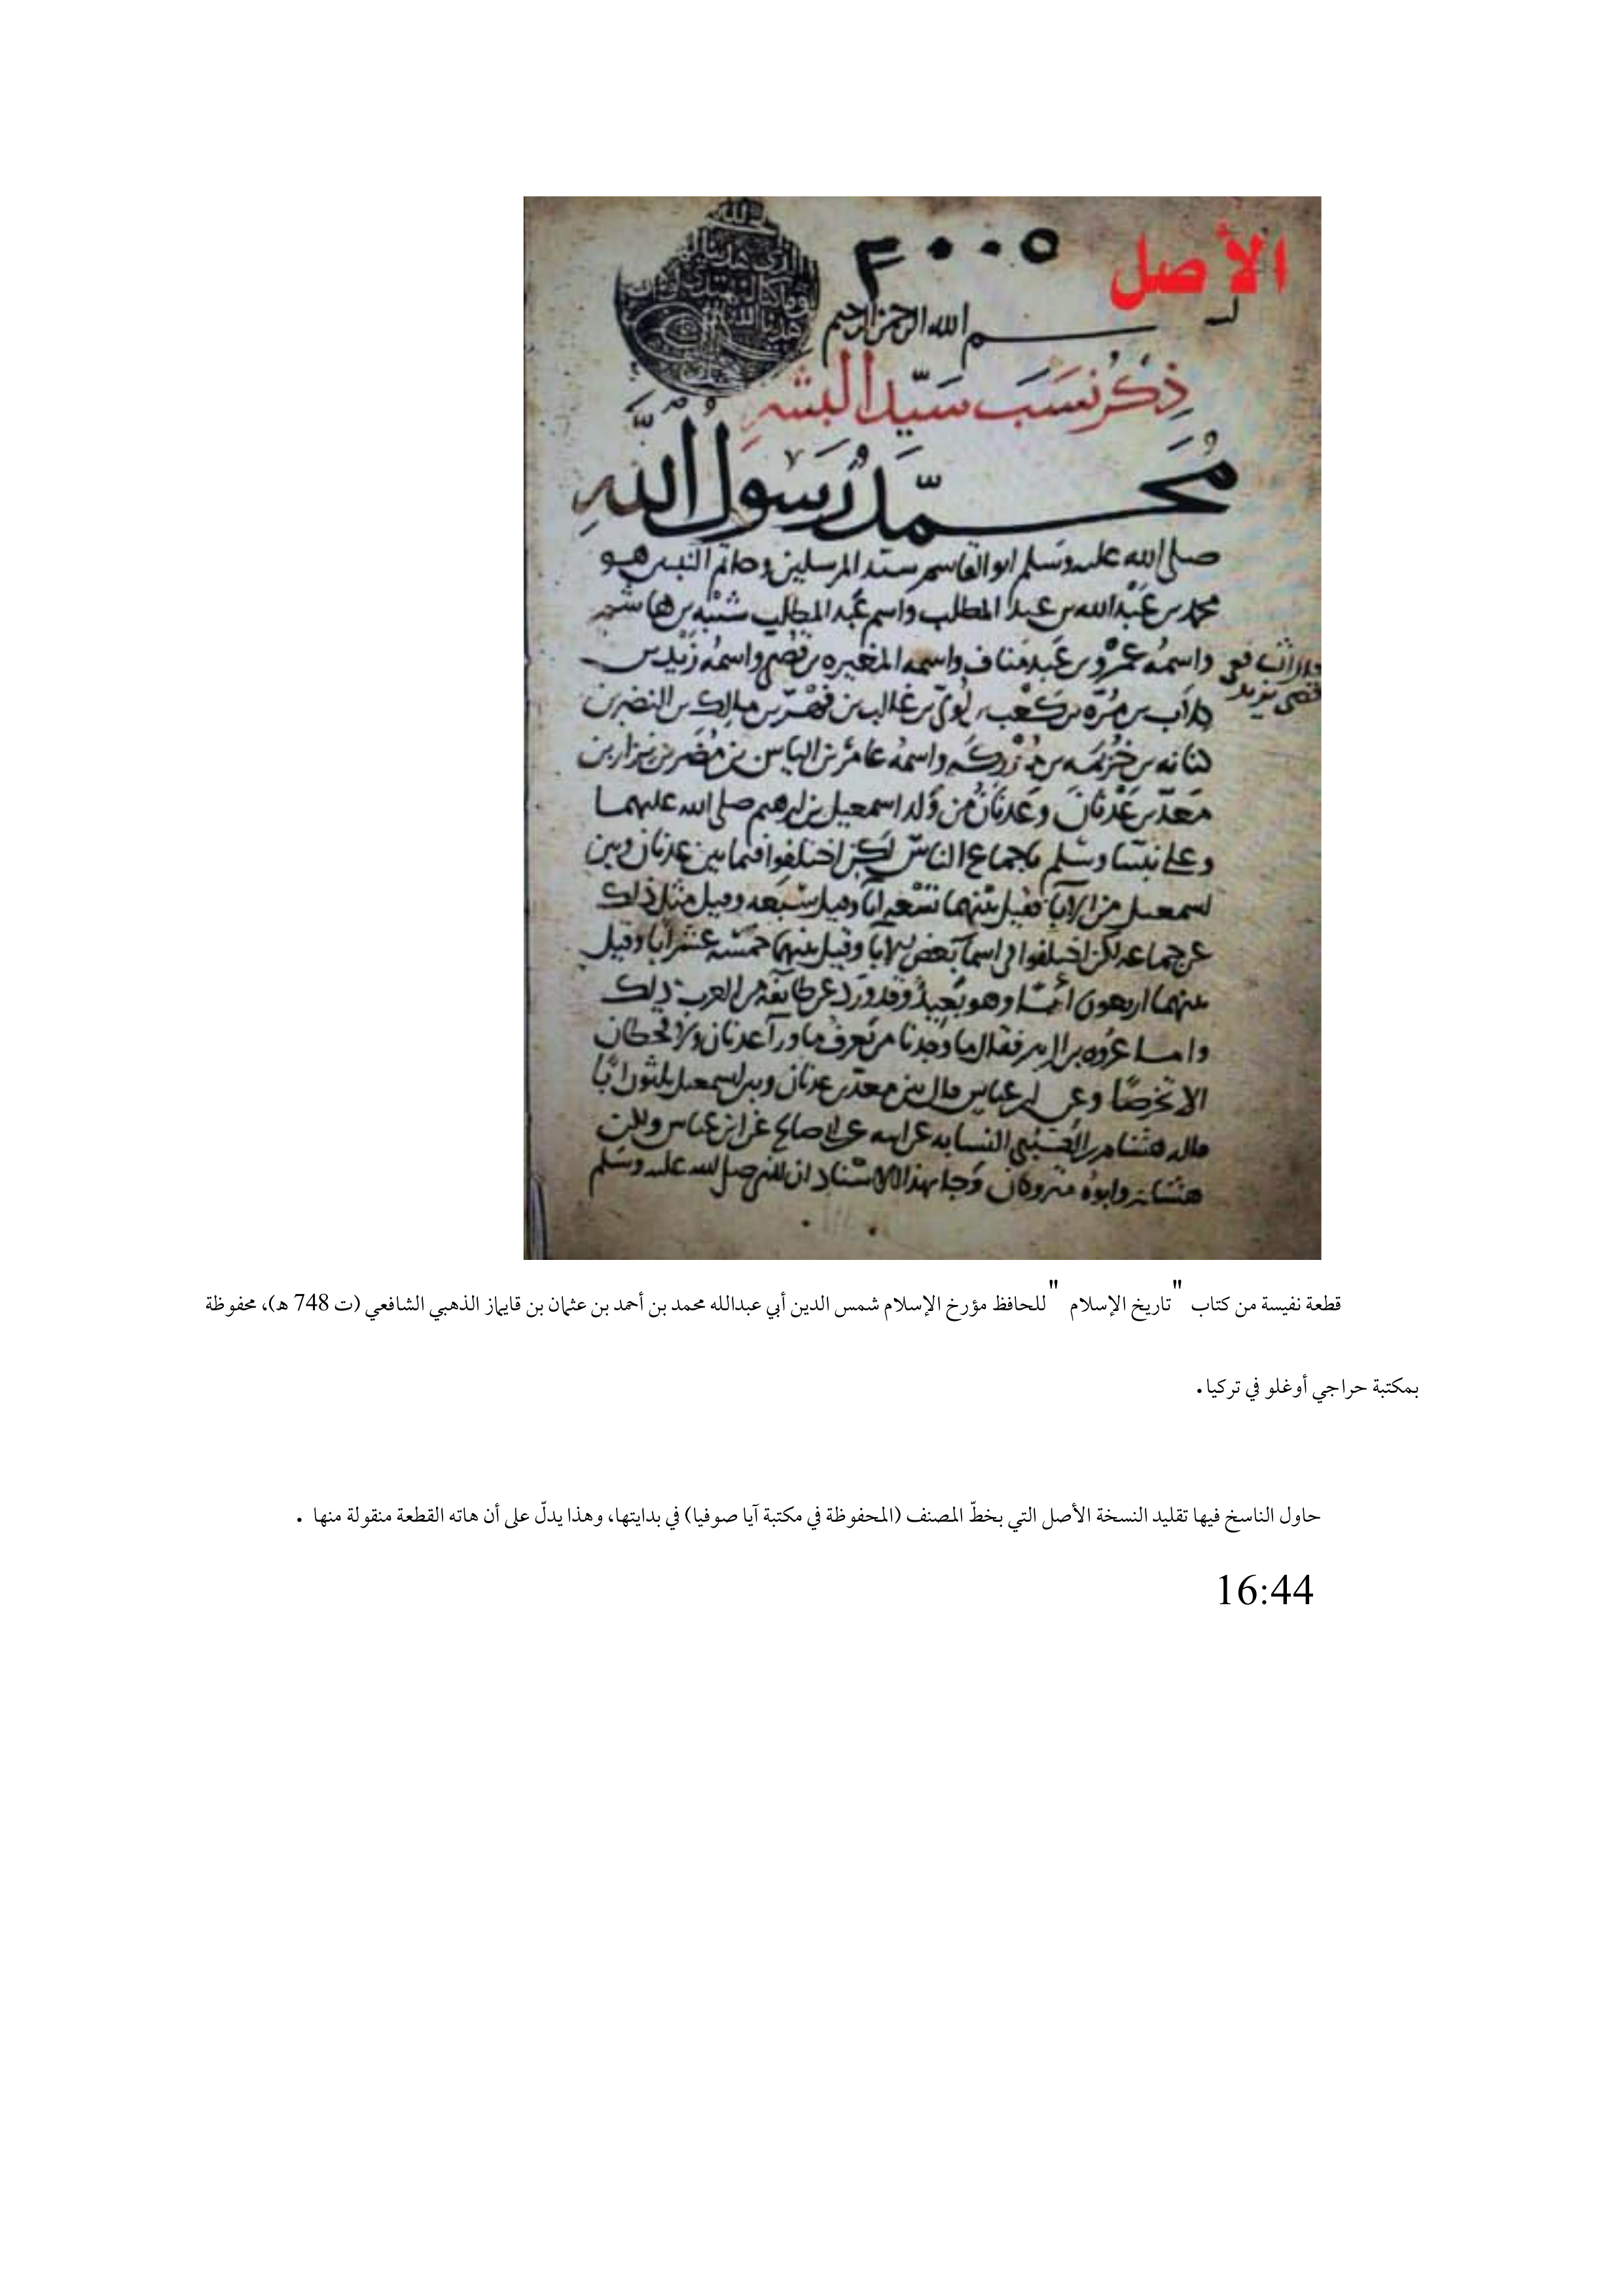 الأصل
٣٠٠٥
بسم الله الرحمن الرحيم
ذِكْر نَسَب سَيّد البشر
مُحَمَّد رَسُول اللهِ
صلى الله عليه وسلم ابو القاسم سيد المرسلين وخاتم النبيين هو
محمد بن عَبْد الله بن عبد المطلب واسم عَبد المطلب شَيْبَه بن هاشم
واسمُه عَمْرو بن عَبد مَناف واسمه المغيره بن قُصَي واسمُه زَيْد بن
قال الشافعي
قصي يزيد
كلاب بن مُرّه بن كَعْب بن لُوَيّ بن غالب بن فِهْر بن مالك بن النضر بن
كنانه بن خُزَيمَه بن مُدْركَه واسمُه عامر بن الياس بن مُضَر بن نزار بن
مَعَدّ بن عَدْنان وعَدنان من وَلد اسمعيل بن ابرهيم صلى الله عليهما
وعلى نبينا وسَلم باجماع الناس لكن اختلفوا فيما بين عدنان وبين
اسمعيل من الاباء فقيل بينهما تسْعه اباء وقيل سَبعَه وقيل مثل ذلك
عن جماعه لكن اختلفوا في اسماء بَعض الاباء وقيل بينهما خمسَه عشر ابا وقيل
بينهما اربعون ابًا وهو بَعيدٌ وقد وَرد عن طائفه من العرب ذلك
واما عُروه بن الزبير فقال ما وَجَدنا من يَعرف ما وراء عدنان ولا قحطان
الا تَخرصًا وعن ابن عباس قال بين معدّ بن عدنان وبين اسمعيل ثلثون ابًا
قاله هشام بن الكَلبي النسابه عن ابيه عن ابي صالح عن ابن عباس ولكن
هشام وابوه متروكان وَجا بهذا الاسْناد ان النبي صلى الله عليه وسَلم
قطعة نفيسة من كتاب "تاريخ الإسلام" للحافظ مؤرخ الإسلام شمس الدين أبي عبدالله محمد بن أحمد بن عثمان بن قايماز الذهبي الشافعي (ت 748 هـ)، محفوظة
بمكتبة حراجي أوغلو في تركيا.
حاول الناسخ فيها تقليد النسخة الأصل التي بخطّ المصنف (المحفوظة في مكتبة آيا صوفيا) في بدايتها، وهذا يدلّ على أن هاته القطعة منقولة منها .
16:44